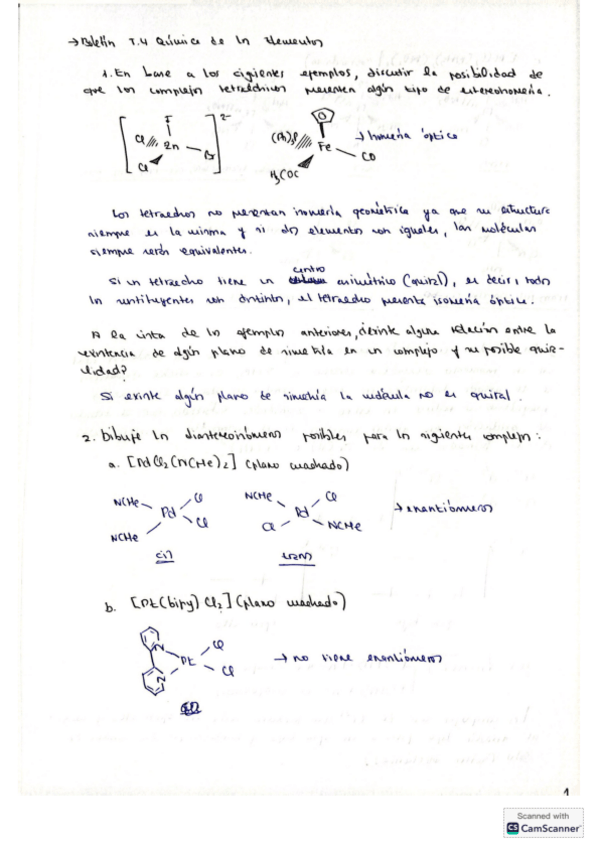 → Boletín T.4 Química de los Elementos
1. En base a los siguientes ejemplos, discutir la posibilidad de
que los complejos tetraédricos presenten algún tipo de estereoisomería.
F
2-
Cl
Zn
Br
Cl
(Ph)3P
Fe
→ Isomería óptica
CO
H3COC
Los tetraedros no presentan isomería geométrica ya que su estructura
siempre es la misma y si dos elementos son iguales, las moléculas
siempre serán equivalentes.
Si un tetraedro tiene un centro asimétrico (quiral), es decir, todos
los sustituyentes son distintos, el tetraedro presenta isomería óptica.
A la vista de los ejemplos anteriores, ¿existe alguna relación entre la
existencia de algún plano de simetría en un complejo y su posible quir-
alidad?
Si existe algún plano de simetría la molécula no es quiral.
2. Dibuje los diastereoisómeros posibles para los siguientes complejos:
a. [PdCl2(NCMe)2] (plano cuadrado)
NCMe
Cl
Pd
Cl
NCMe
cis
NCMe
Cl
Pd
Cl
NCMe
trans
→ enantiómeros
b. [Pt(bipy)Cl2] (plano cuadrado)
N
Cl
Pt
N
Cl
→ no tiene enantiómeros
1
Scanned with
CS CamScanner